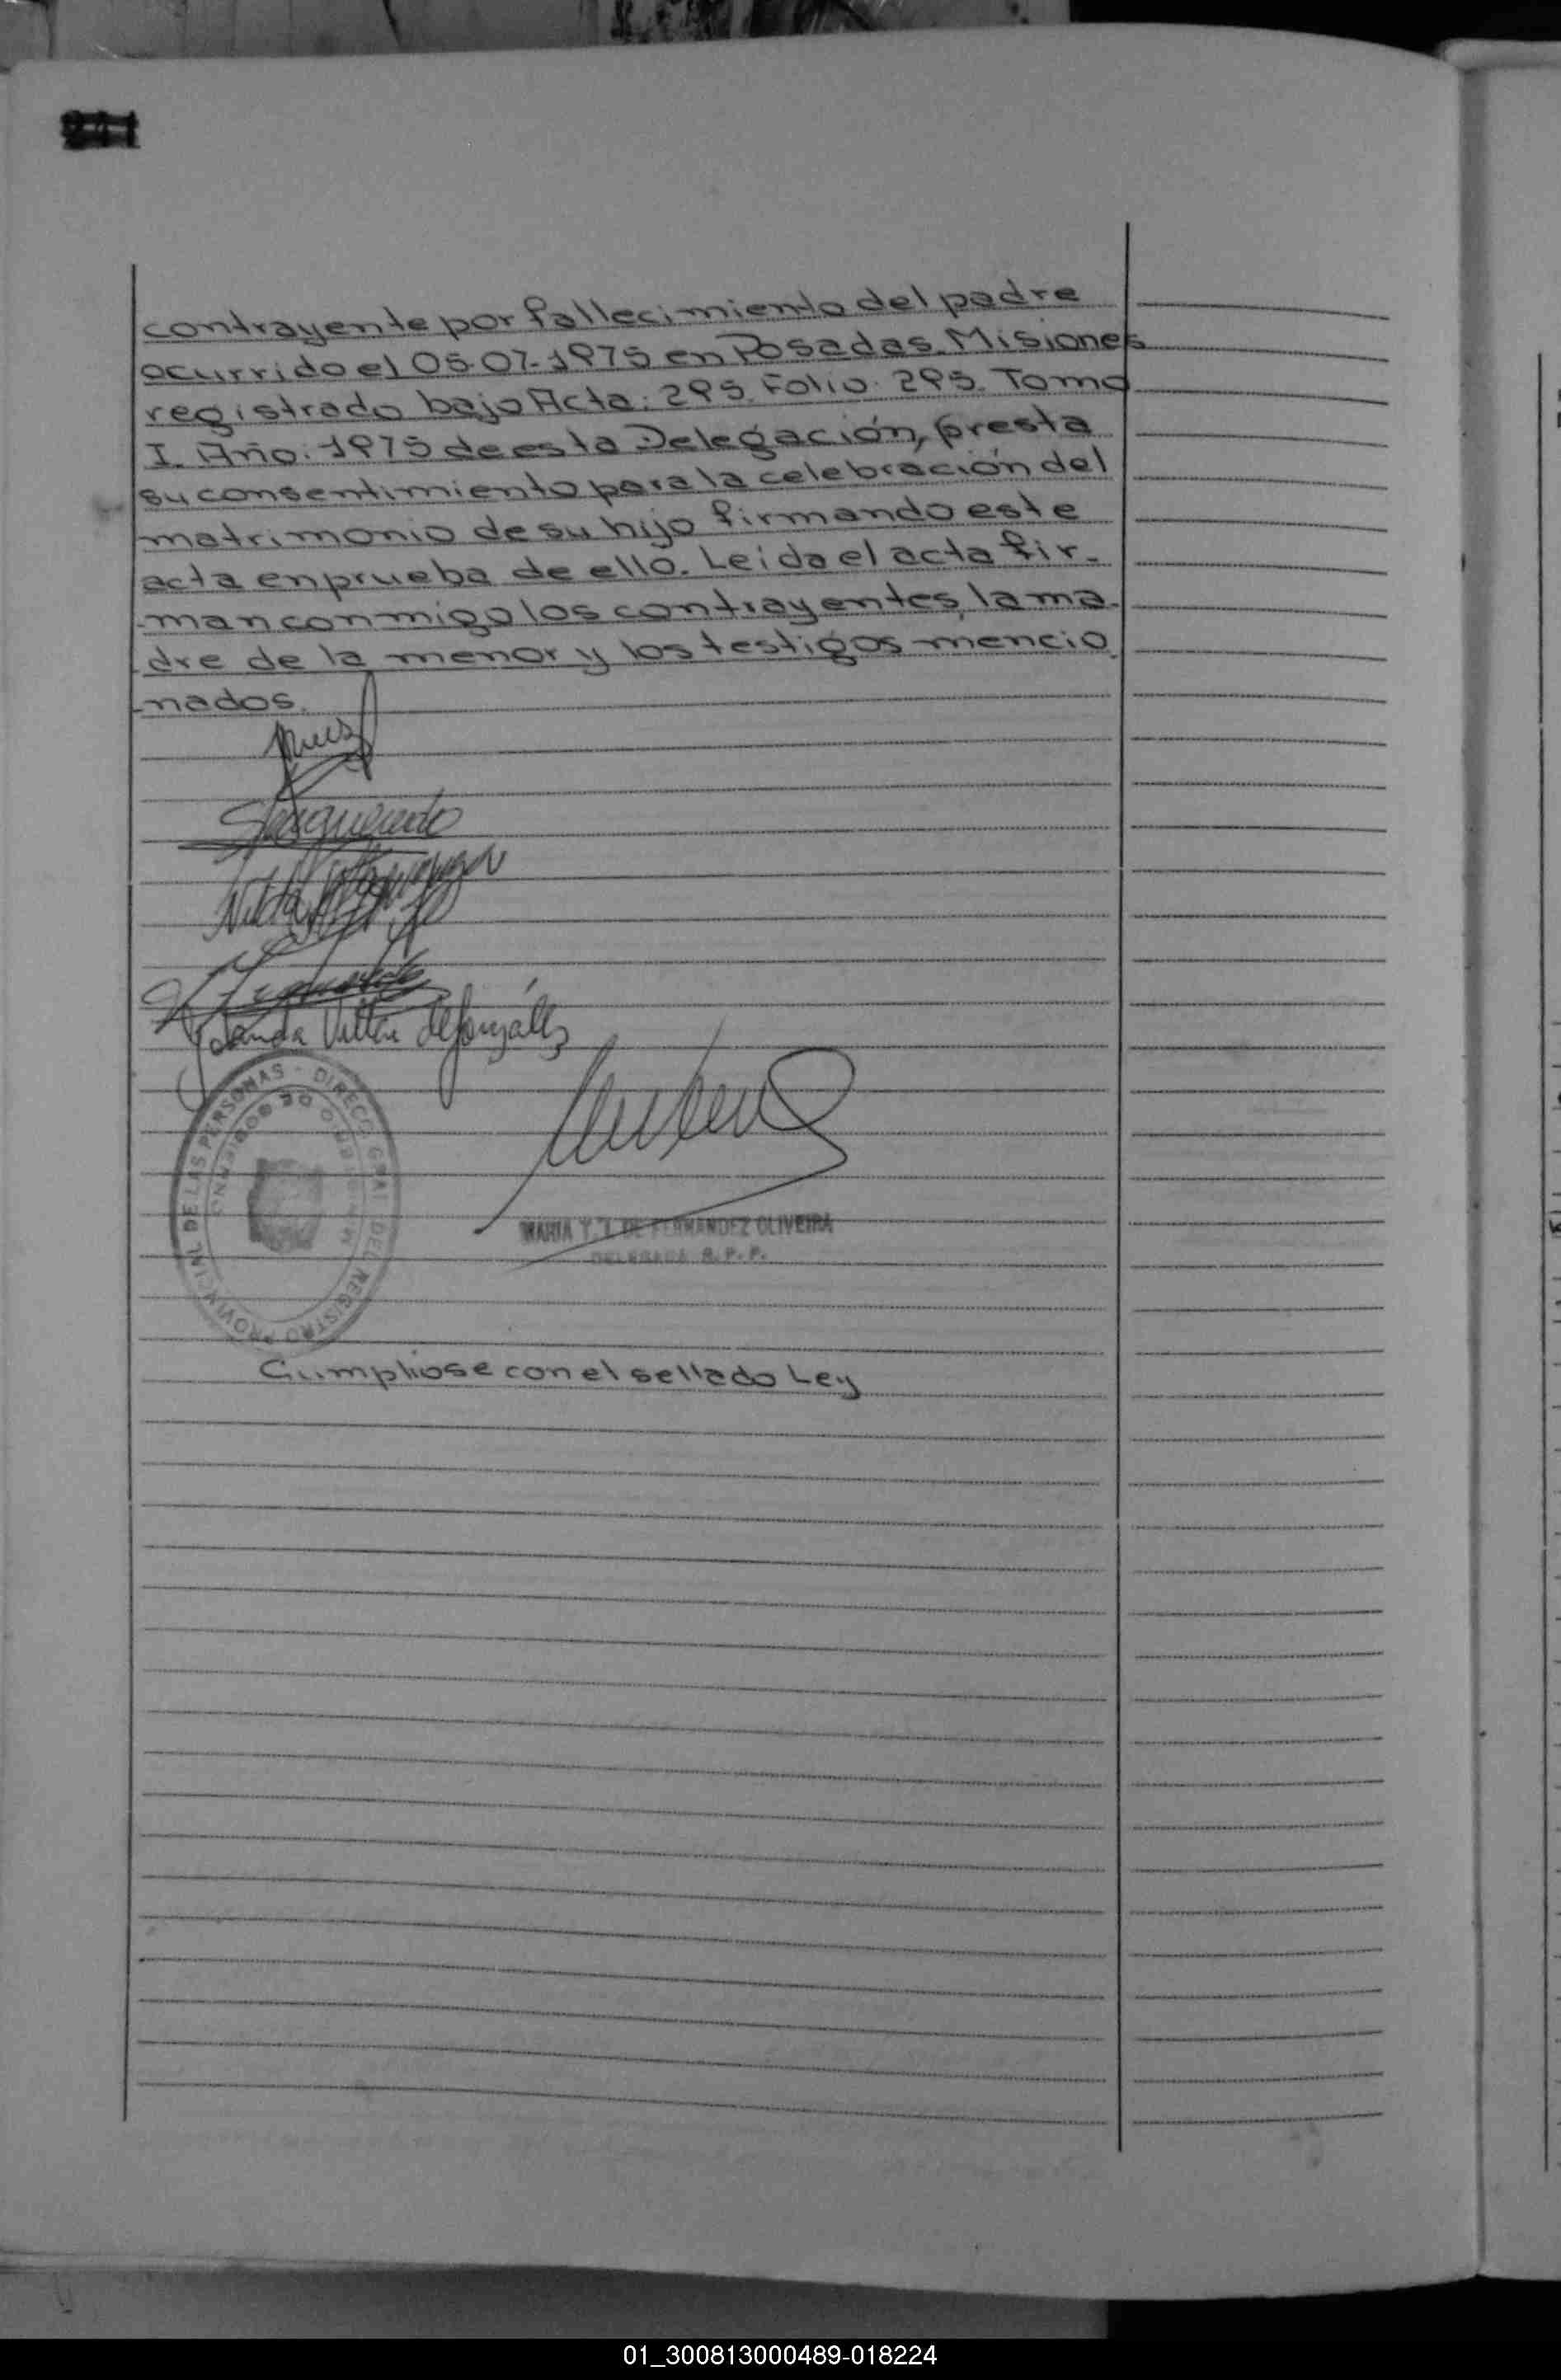 contrayente por fallecimiento del padre
ocurrido el 05-07-1975 en Posadas. Misiones
registrado bajo Acta: 295. Folio: 295. Tomo
I. Año: 1975 de esta Delegación, presta
su consentimiento para la celebración del
matrimonio de su hijo firmando este
acta en prueba de ello. Leida el acta fir-
man conmigo los contrayentes, la ma-
dre de la menor y los testigos mencio
nados.
Yolanda Villar de González
DIRECC. GRAL. DEL REGISTRO PROVINCIAL DE LAS PERSONAS
MINISTERIO DE GOBIERNO
MARIA Y. DE FERNANDEZ OLIVEIRA
DELEGADA R. P. P.
Cumpliose con el sellado Ley
01_300813000489-018224